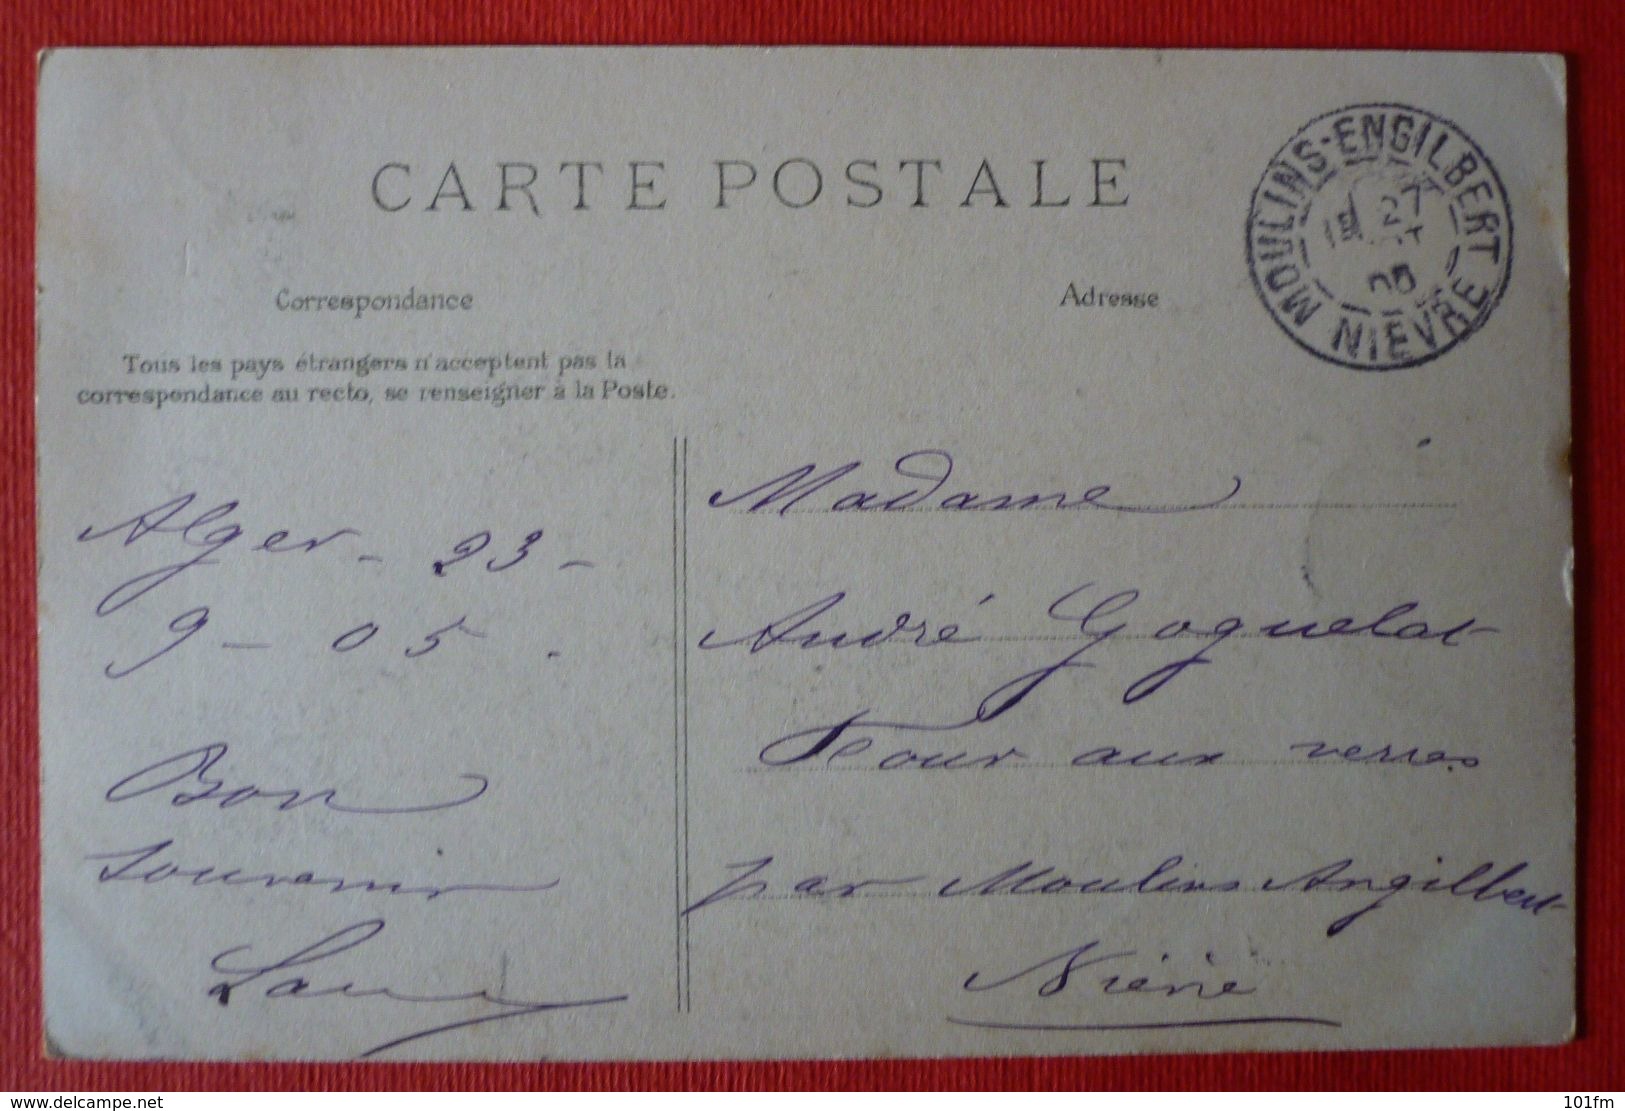 CARTE POSTALE
MOULINS-ENGILBERT
NIEVRE
05
Correspondance
Adresse
Tous les pays étrangers n'acceptent pas la
correspondance au recto, se renseigner à la Poste.
Alger - 23 -
9 - 05.
Bon
souvenir
Madame
André Goguelat
Four aux verres
par Moulins Angilbert
Nièvre
www.delcampe.net
101fm